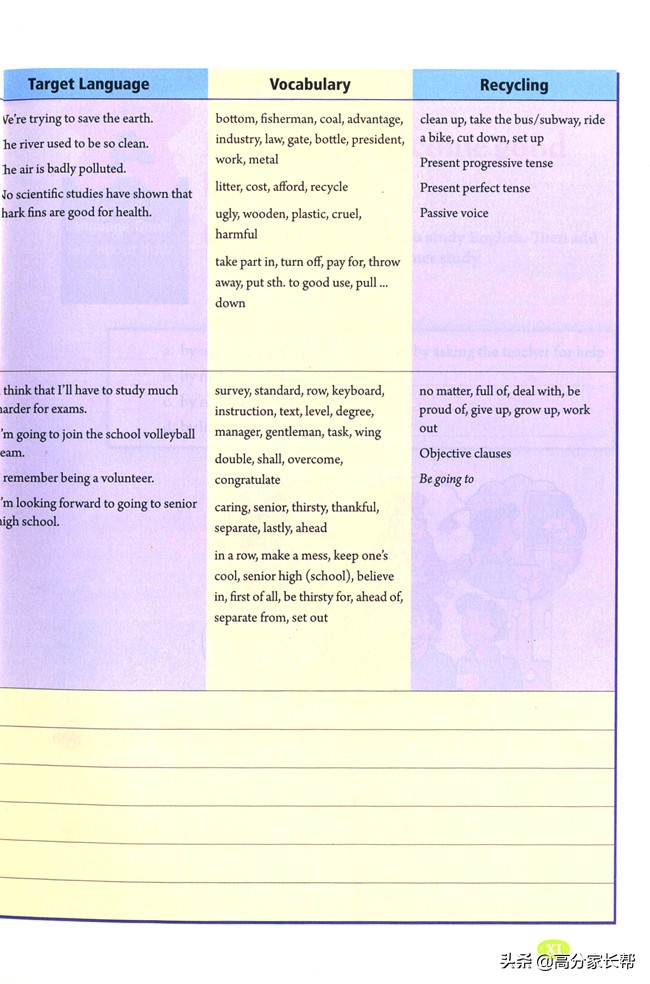 Target Language
Vocabulary
Recycling
We're trying to save the earth.
he river used to be so clean.
he air is badly polluted.
No scientific studies have shown that
hark fins are good for health.
bottom, fisherman, coal, advantage,
industry, law, gate, bottle, president,
work, metal
litter, cost, afford, recycle
ugly, wooden, plastic, cruel,
harmful
take part in, turn off, pay for, throw
away, put sth. to good use, pull ...
down
clean up, take the bus/subway, ride
a bike, cut down, set up
Present progressive tense
Present perfect tense
Passive voice
think that I'll have to study much
harder for exams.
'm going to join the school volleyball
eam.
remember being a volunteer.
'm looking forward to going to senior
igh school.
survey, standard, row, keyboard,
instruction, text, level, degree,
manager, gentleman, task, wing
double, shall, overcome,
congratulate
caring, senior, thirsty, thankful,
separate, lastly, ahead
in a row, make a mess, keep one's
cool, senior high (school), believe
in, first of all, be thirsty for, ahead of,
separate from, set out
no matter, full of, deal with, be
proud of, give up, grow up, work
out
Objective clauses
Be going to
XI
头条 @高分家长帮